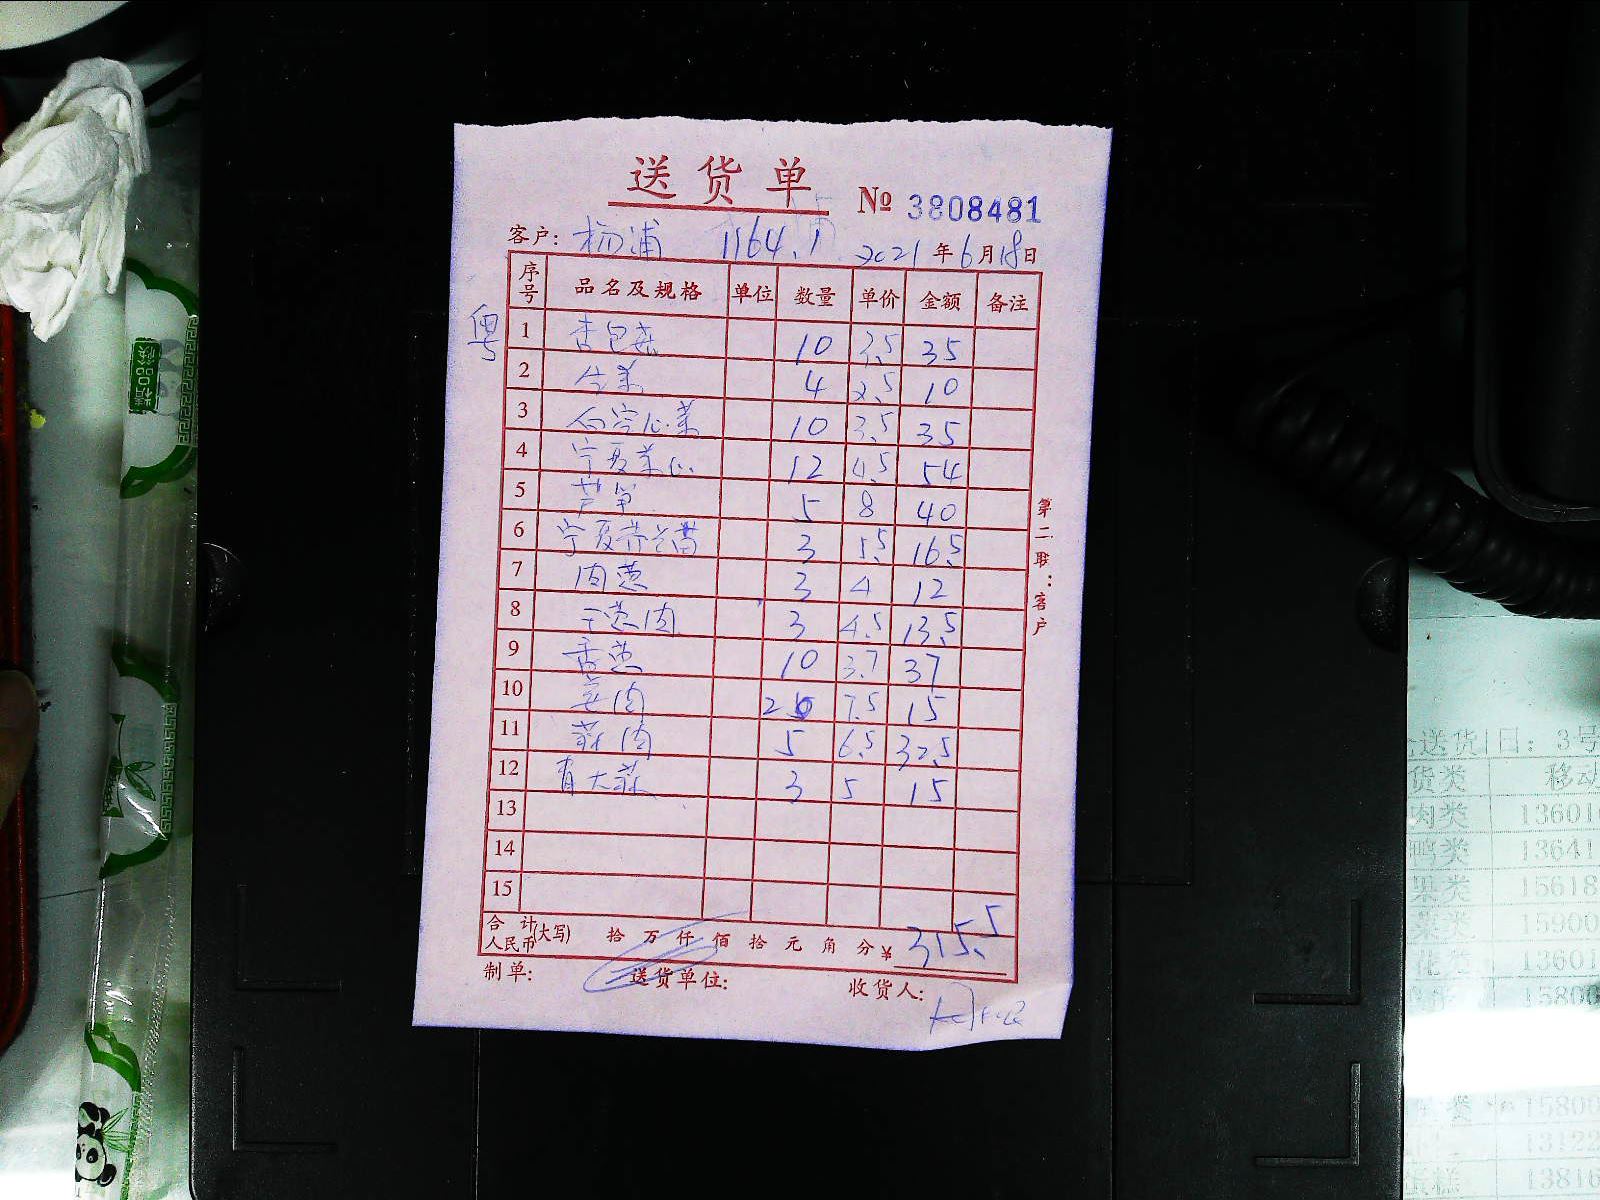 送货单
№ 3808481
客户: 杨浦 1164.1 2021年6月18日
粤
序号 品名及规格 单位 数量 单价 金额 备注
1 杏包菇 10 3.5 35
2 生菜 4 2.5 10
3 白空心菜 10 3.5 35
4 宁夏菜心 12 4.5 54
5 芦笋 5 8 40
6 宁夏芥兰苗 3 5.5 16.5
7 肉葱 3 4 12
8 干葱肉 3 4.5 13.5
9 香葱 10 3.7 37
10 姜肉 2 7.5 15
11 蒜肉 5 6.5 32.5
12 青大蒜 3 5 15
13
14
15
合计人民币(大写) 拾 万 仟 佰 拾 元 角 分 ¥ 315.5
制单: 送货单位: 收货人:
第二联:客户
送货日: 3号
货类 移动
肉类 13601
鸭类 13641
果类 15618
菜类 15900
13601
15800
15800
13122
蛋糕 13816